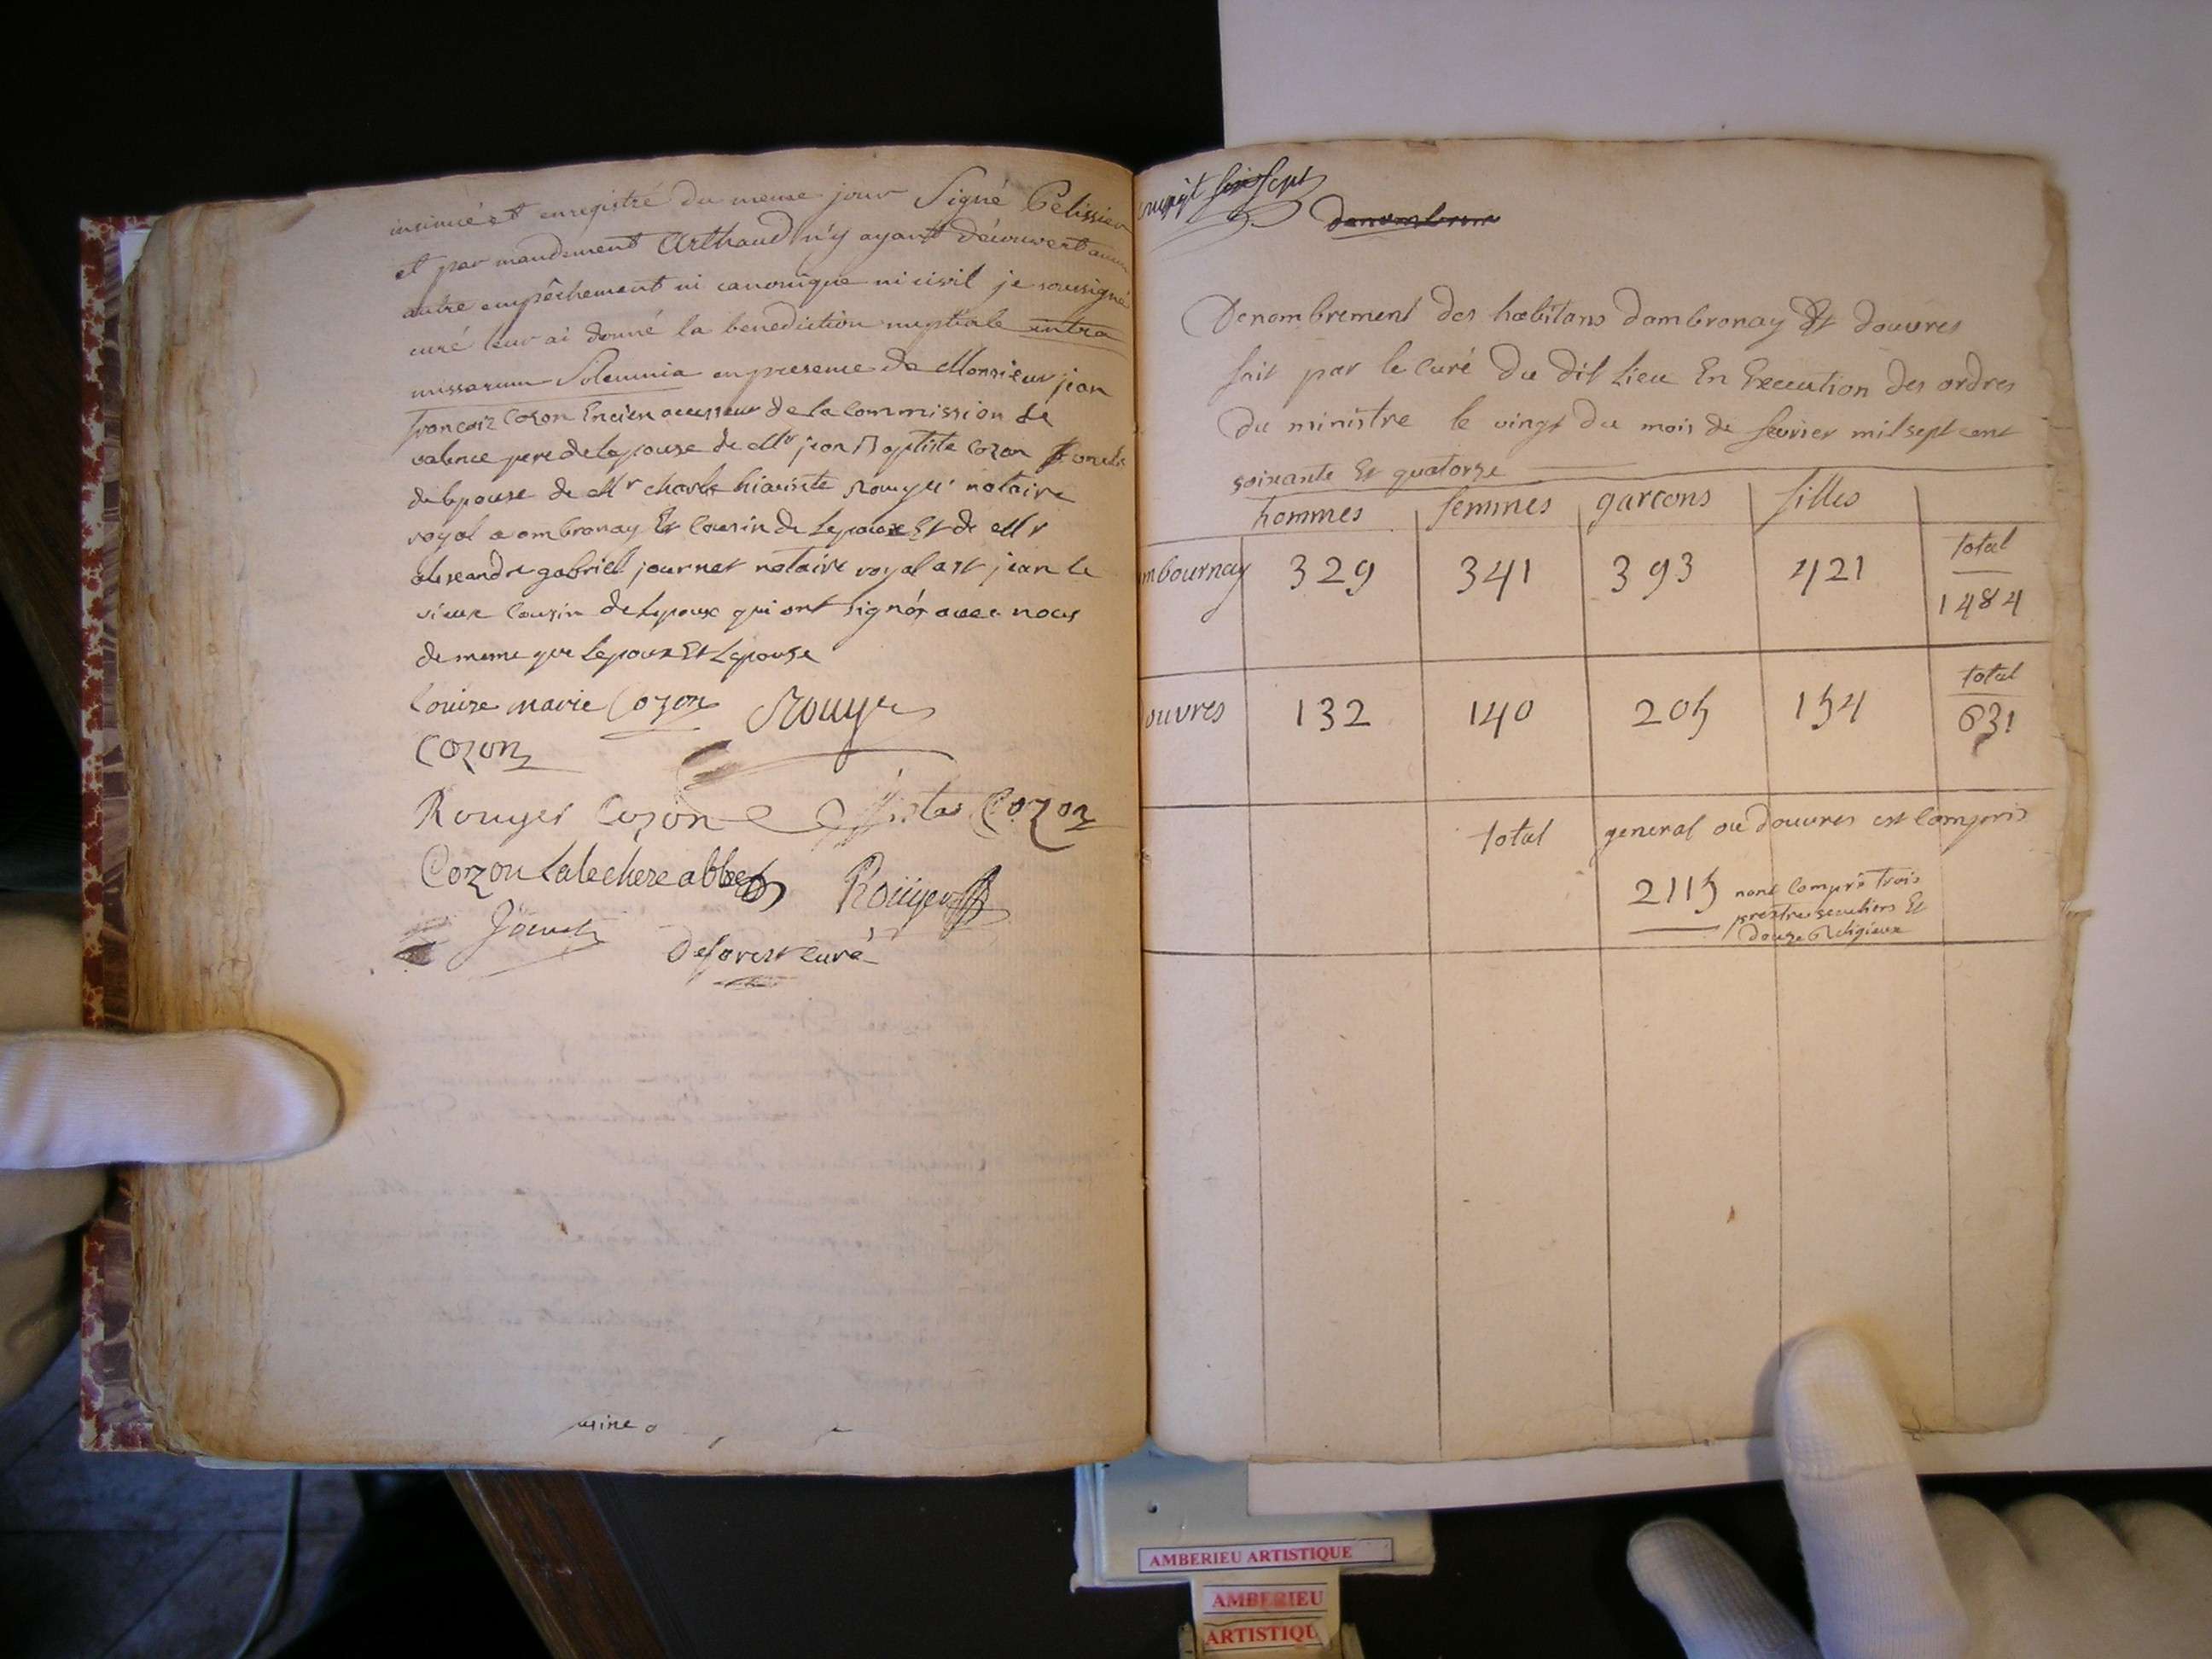 insinué et enregistré du meme jour Signé Pelissier
et par mandement Arthaud n'y ayant découvert aucun
autre empêchement ni canonique ni civil je soussigné
curé leur ai donné la benediction nuptiale intra
missarum Solemnia en presence de Monsieur jean
francois Cozon Encien accesseur de la Commission de
valence pere de lepouse de Mr jean Baptiste Cozon oncle
de lepouse de Mr charle hiacinte Rouyer notaire
royal a ambronay Et Cousin de Lepoux Et de Mr
alexandre gabriel journet notaire royal a st jean le
vieux Cousin de Lepoux qui ont signés avec nous
de meme que Lepoux Et Lepouse
Louise marie Cozon Rouyer
Cozon
Rouyer Cozon Cozon
Cozon Labechere abbé Roüyer
Deforest curé
Denombrement des habitans dambronay Et douvres
fait par le Curé du dit Lieu En Execution des ordres
du ministre le vingt du mois de fevrier mil sept cent
soixante Et quatorze
hommes femmes garcons filles
mbournay 329 341 393 421 total 1484
ouvres 132 140 205 154 total 631
total general ou douvres est Compris
2115 non Compris trois
prestres seculiers Et
douze Religieux
AMBERIEU ARTISTIQUE
AMBERIEU
ARTISTIQU